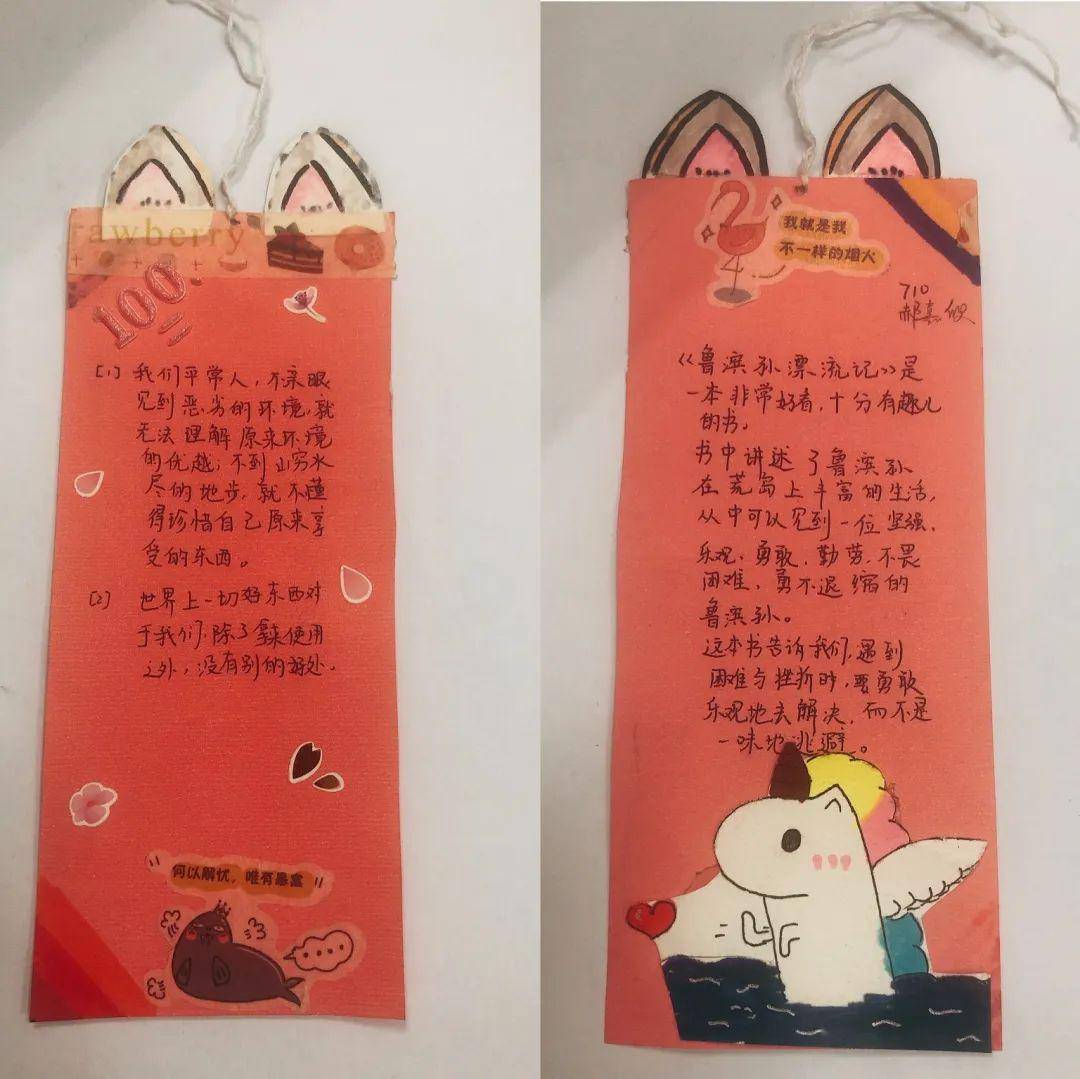 rawberry
100
[1] 我们平常人，不亲眼
见到恶劣的环境，就
无法理解原来环境
的优越；不到山穷水
尽的地步，就不懂
得珍惜自己原来享
受的东西。
[2] 世界上一切好东西对
于我们，除了拿来使用
之外，没有别的好处．
"何以解忧，唯有暴富"
我就是我
不一样的烟火
710
郝嘉
《鲁滨孙漂流记》是
一本非常好看，十分有趣儿
的书。
书中讲述了鲁滨孙
在荒岛上丰富的生活，
从中可以见到一位坚强、
乐观、勇敢、勤劳、不畏
困难、勇不退缩的
鲁滨孙。
这本书告诉我们，遇到
困难与挫折时，要勇敢
乐观地去解决，而不是
一味地逃避。